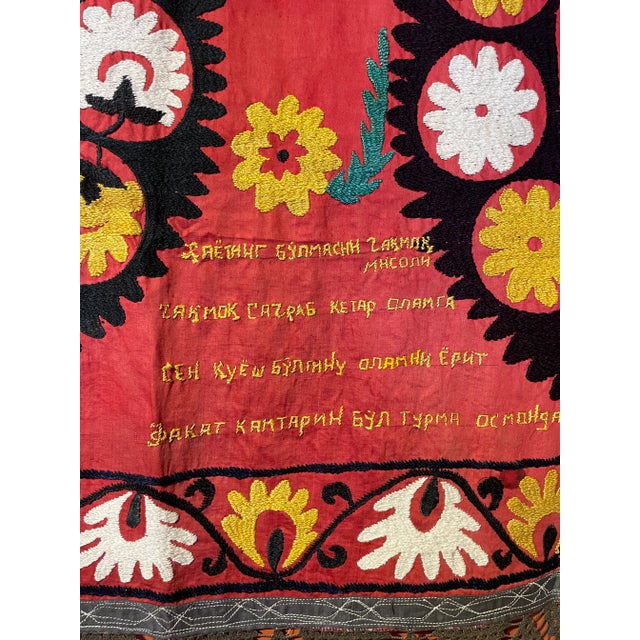 Ҳаётинг бўлмасин чақмоқ
мисоли
чақмоқ сачраб кетар оламга
сен қуёш бўлгину оламни ёрит
Фақат камтарин бўл турма осмонда